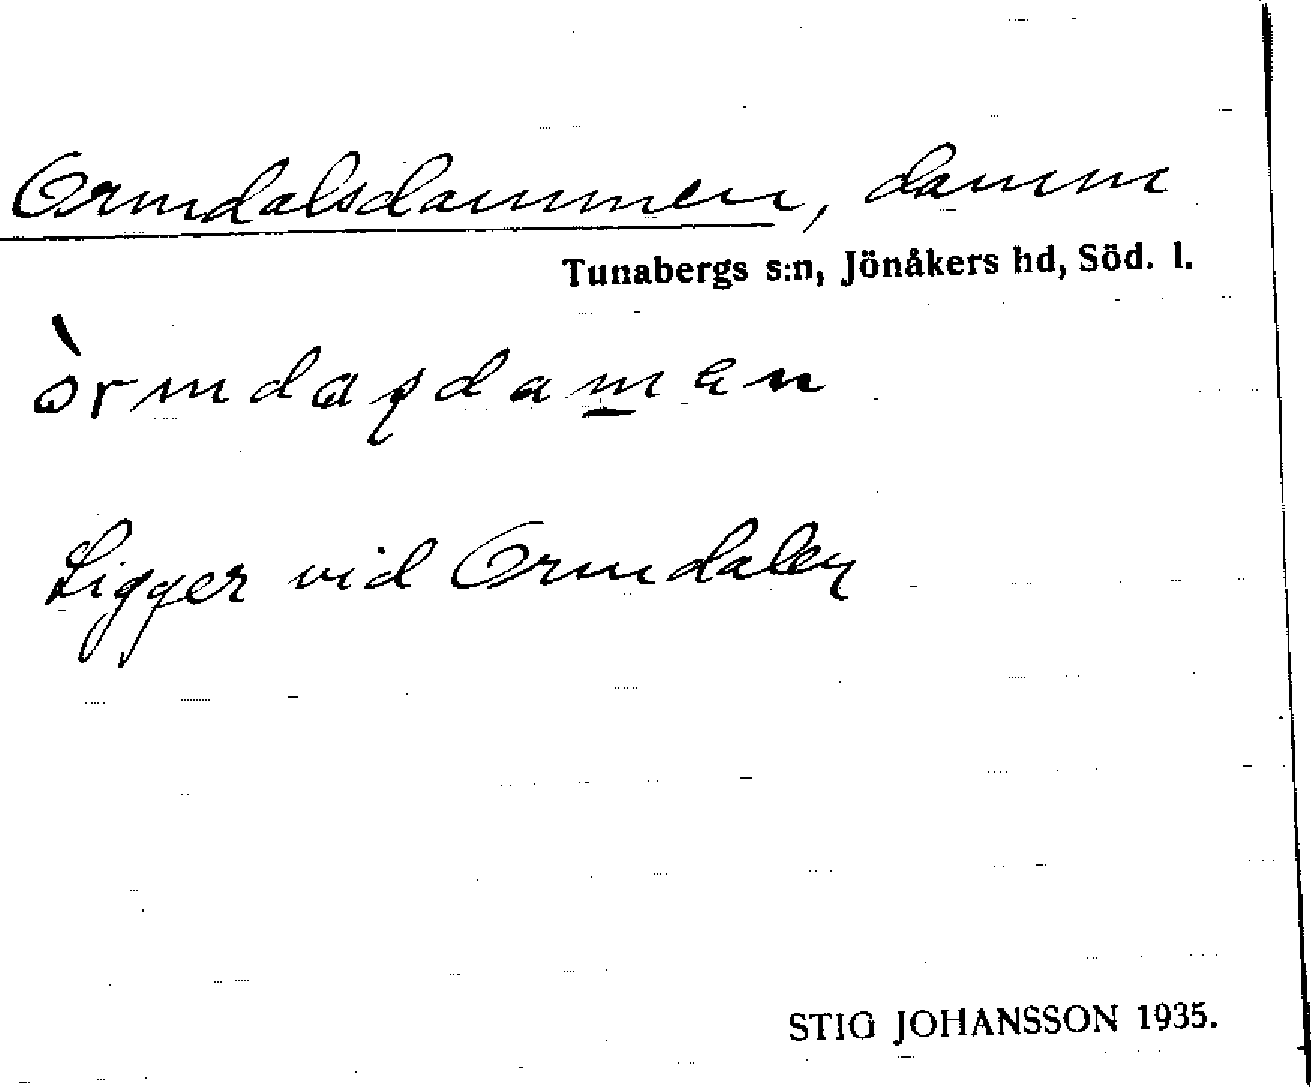 Ormdalsdammen, damm
Tunabergs s:n, Jönåkers hd, Söd. l.
òrmdaʂdamən
Ligger vid Ormdalen
STIG JOHANSSON 1935.